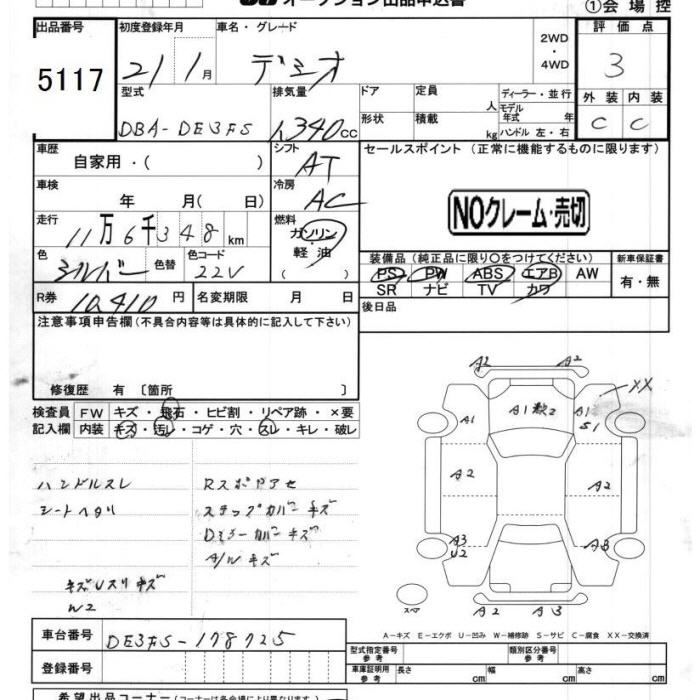 オークション出品申込書
①会場控
出品番号 初度登録年月 車名・グレード 評価点
5117 21 1月 デミオ 2WD・4WD 3
型式 排気量 ドア 定員 人 ディーラー・並行 外装 内装
DBA-DE3FS 1,340cc 形状 積載 kg モデル年式 年 ハンドル 左・右 C C
車歴 自家用・( ) シフト AT セールスポイント (正常に機能するものに限ります)
車検 年 月( 日) 冷房 AC
NOクレーム・売切
走行 11万6千348km 燃料 ガソリン・軽油 ( )
色 シルバー 色替 色コード 22V
装備品(純正品に限り〇をつけてください) 新車保証書
PS PW ABS エアB AW 有・無
SR ナビ TV カワ
R券 10,410円 名変期限 月 日 後日品
注意事項申告欄(不具合内容等は具体的に記入して下さい)
修復歴 有〔箇所 〕
検査員 FW キズ・飛石・ヒビ割・リペア跡・×要
記入欄 内装 キズ・汚レ・コゲ・穴・スレ・キレ・破レ
ハンドルスレ
シートヘタリ
キズUスリキズ
W2
Rスポイラーアセ
ステップカバーキズ
Dミラーカバーキズ
A/Wキズ
A2 A2
XX
A1 A1 A1
S1
A2 A2
A3 A3
U2
スペア
A2 A3
A-キズ E-エクボ U-凹み W-補修跡 S-サビ C-腐食 XX-交換済
車台番号 DE3FS-178725
型式指定番号 参考 類別区分番号 参考
登録番号
車庫証明用 参考 長さ cm 幅 cm 高さ cm
希望出品コーナー(コーナーは各会場により異なります)